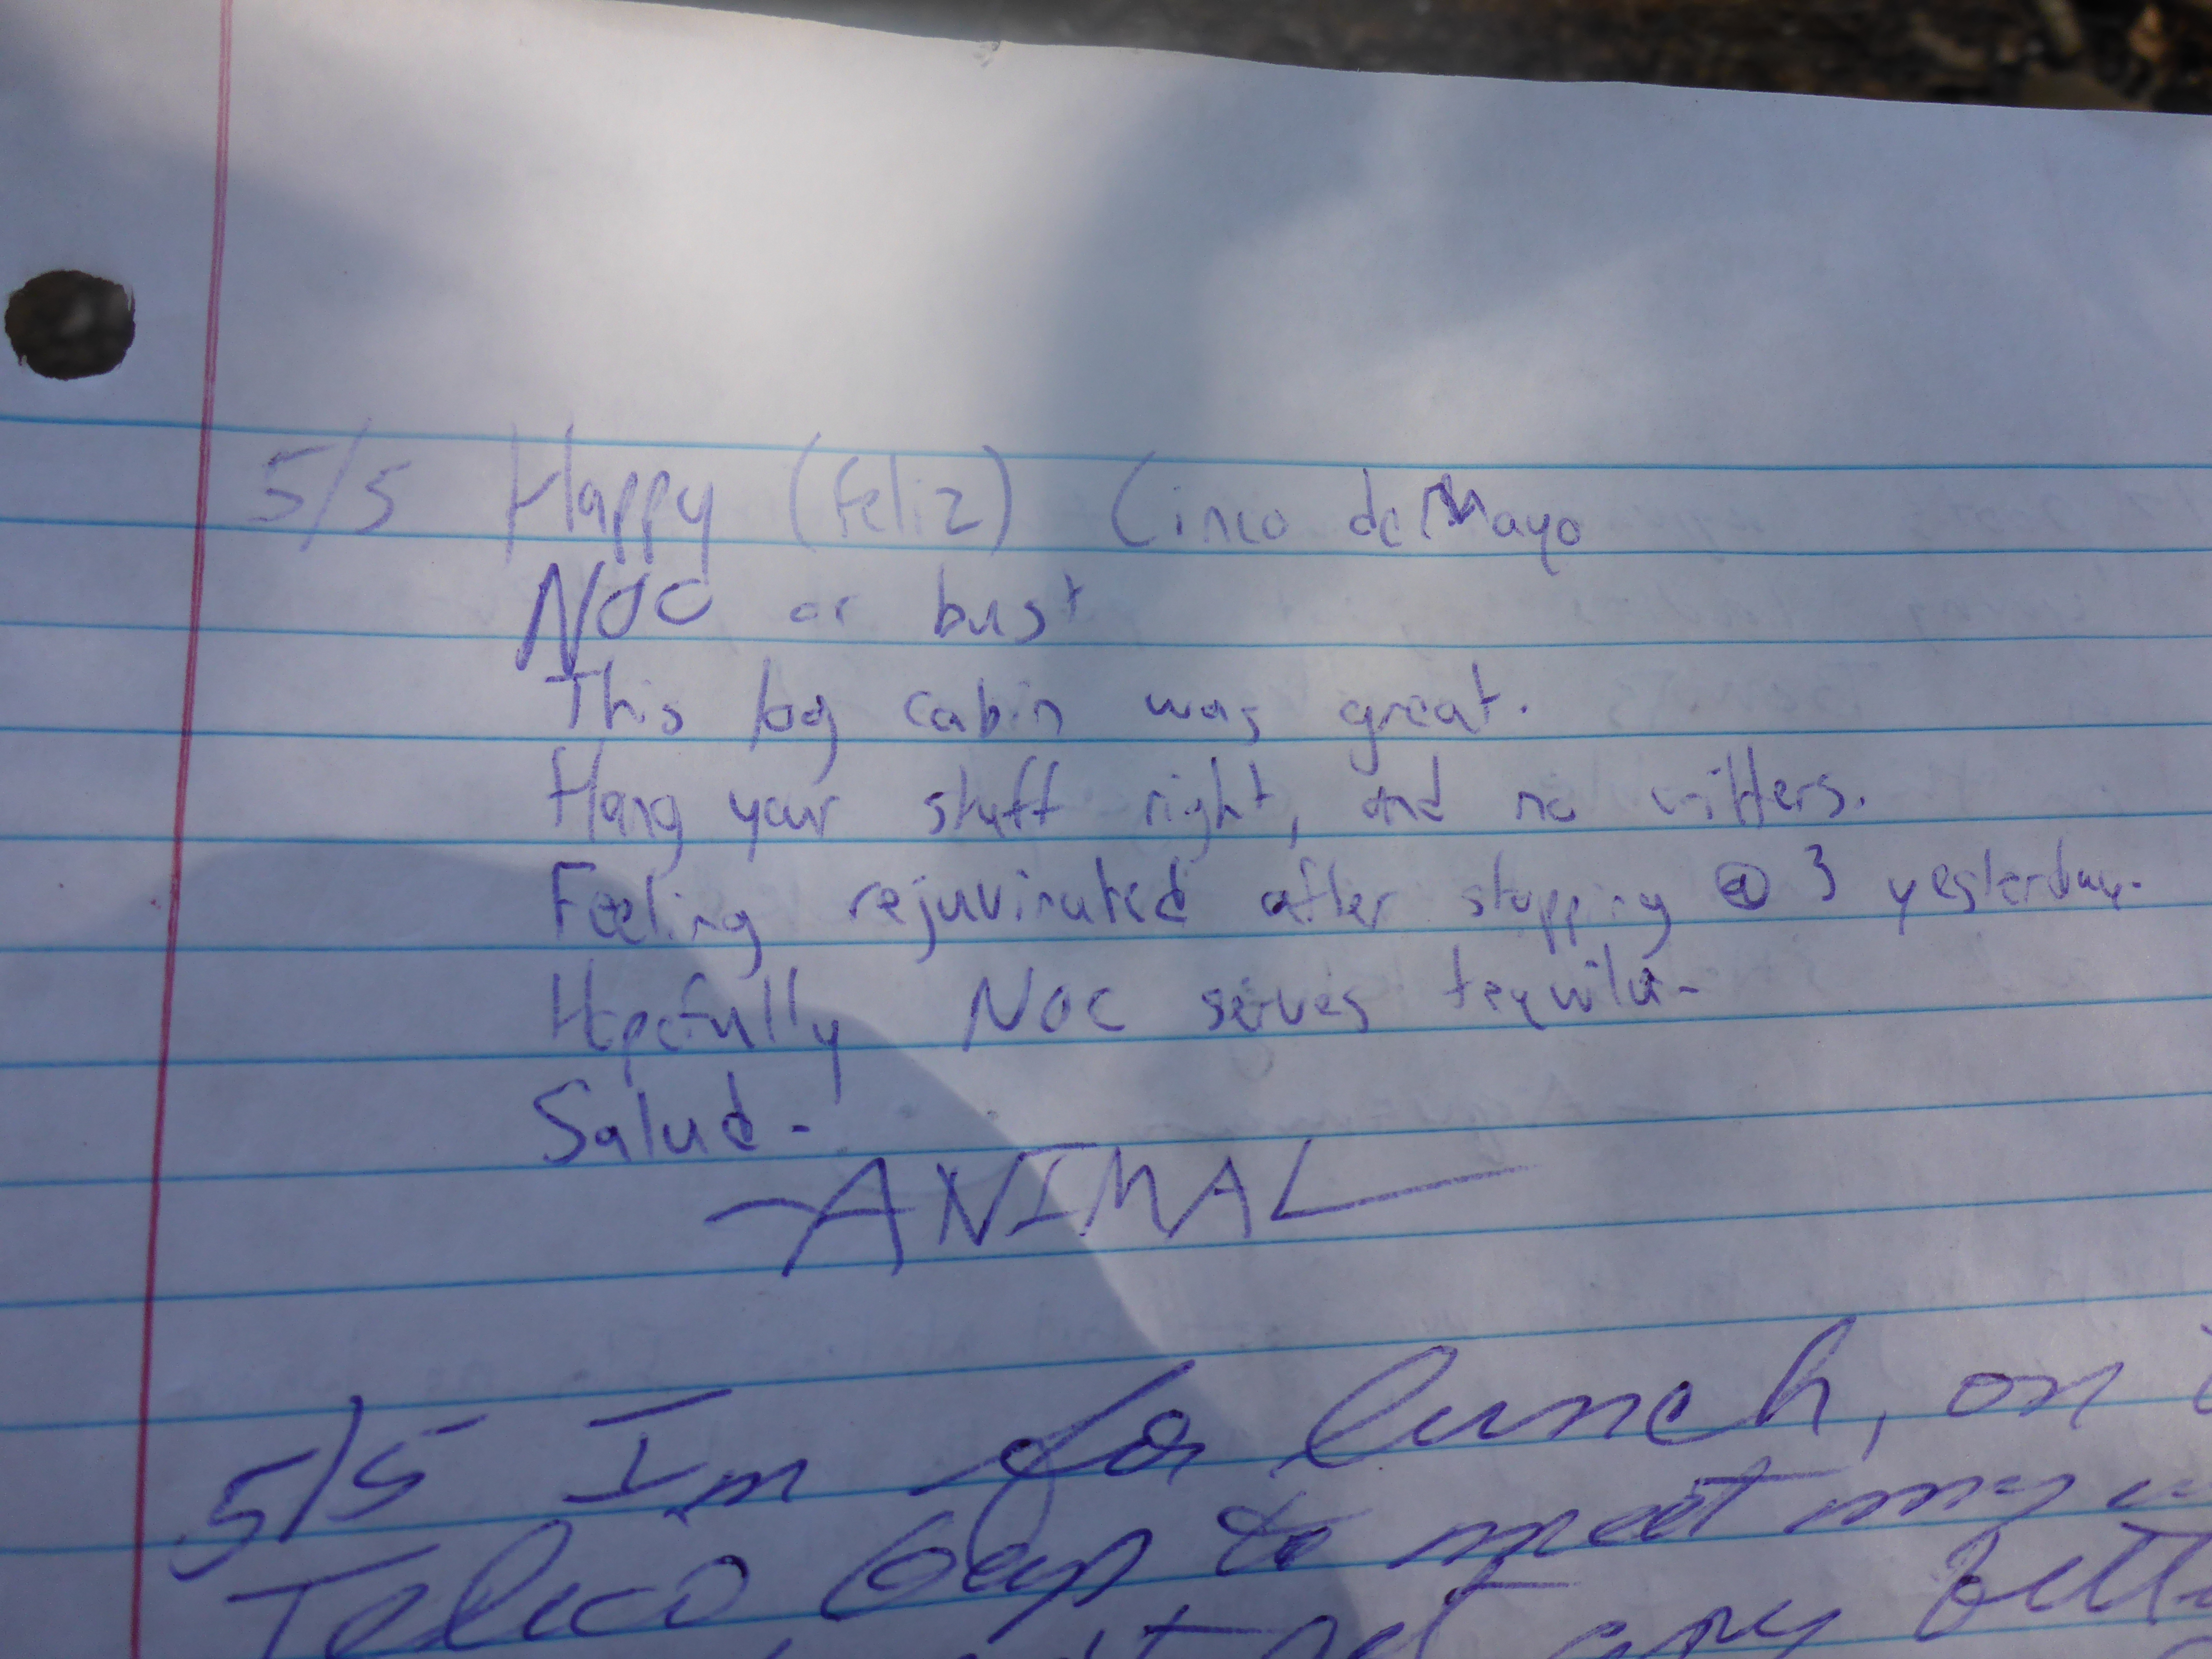 5/5 Happy (Feliz) Cinco de Mayo
NOC or bust
This log cabin was great.
Hang your stuff right, and no critters.
Feeling rejuvinated after stopping @ 3 yesterday.
Hopefully NOC serves tequila.
Salud.
-ANIMAL
5/5 Im for lunch, on
Teleco Gap to meet my
get any bett